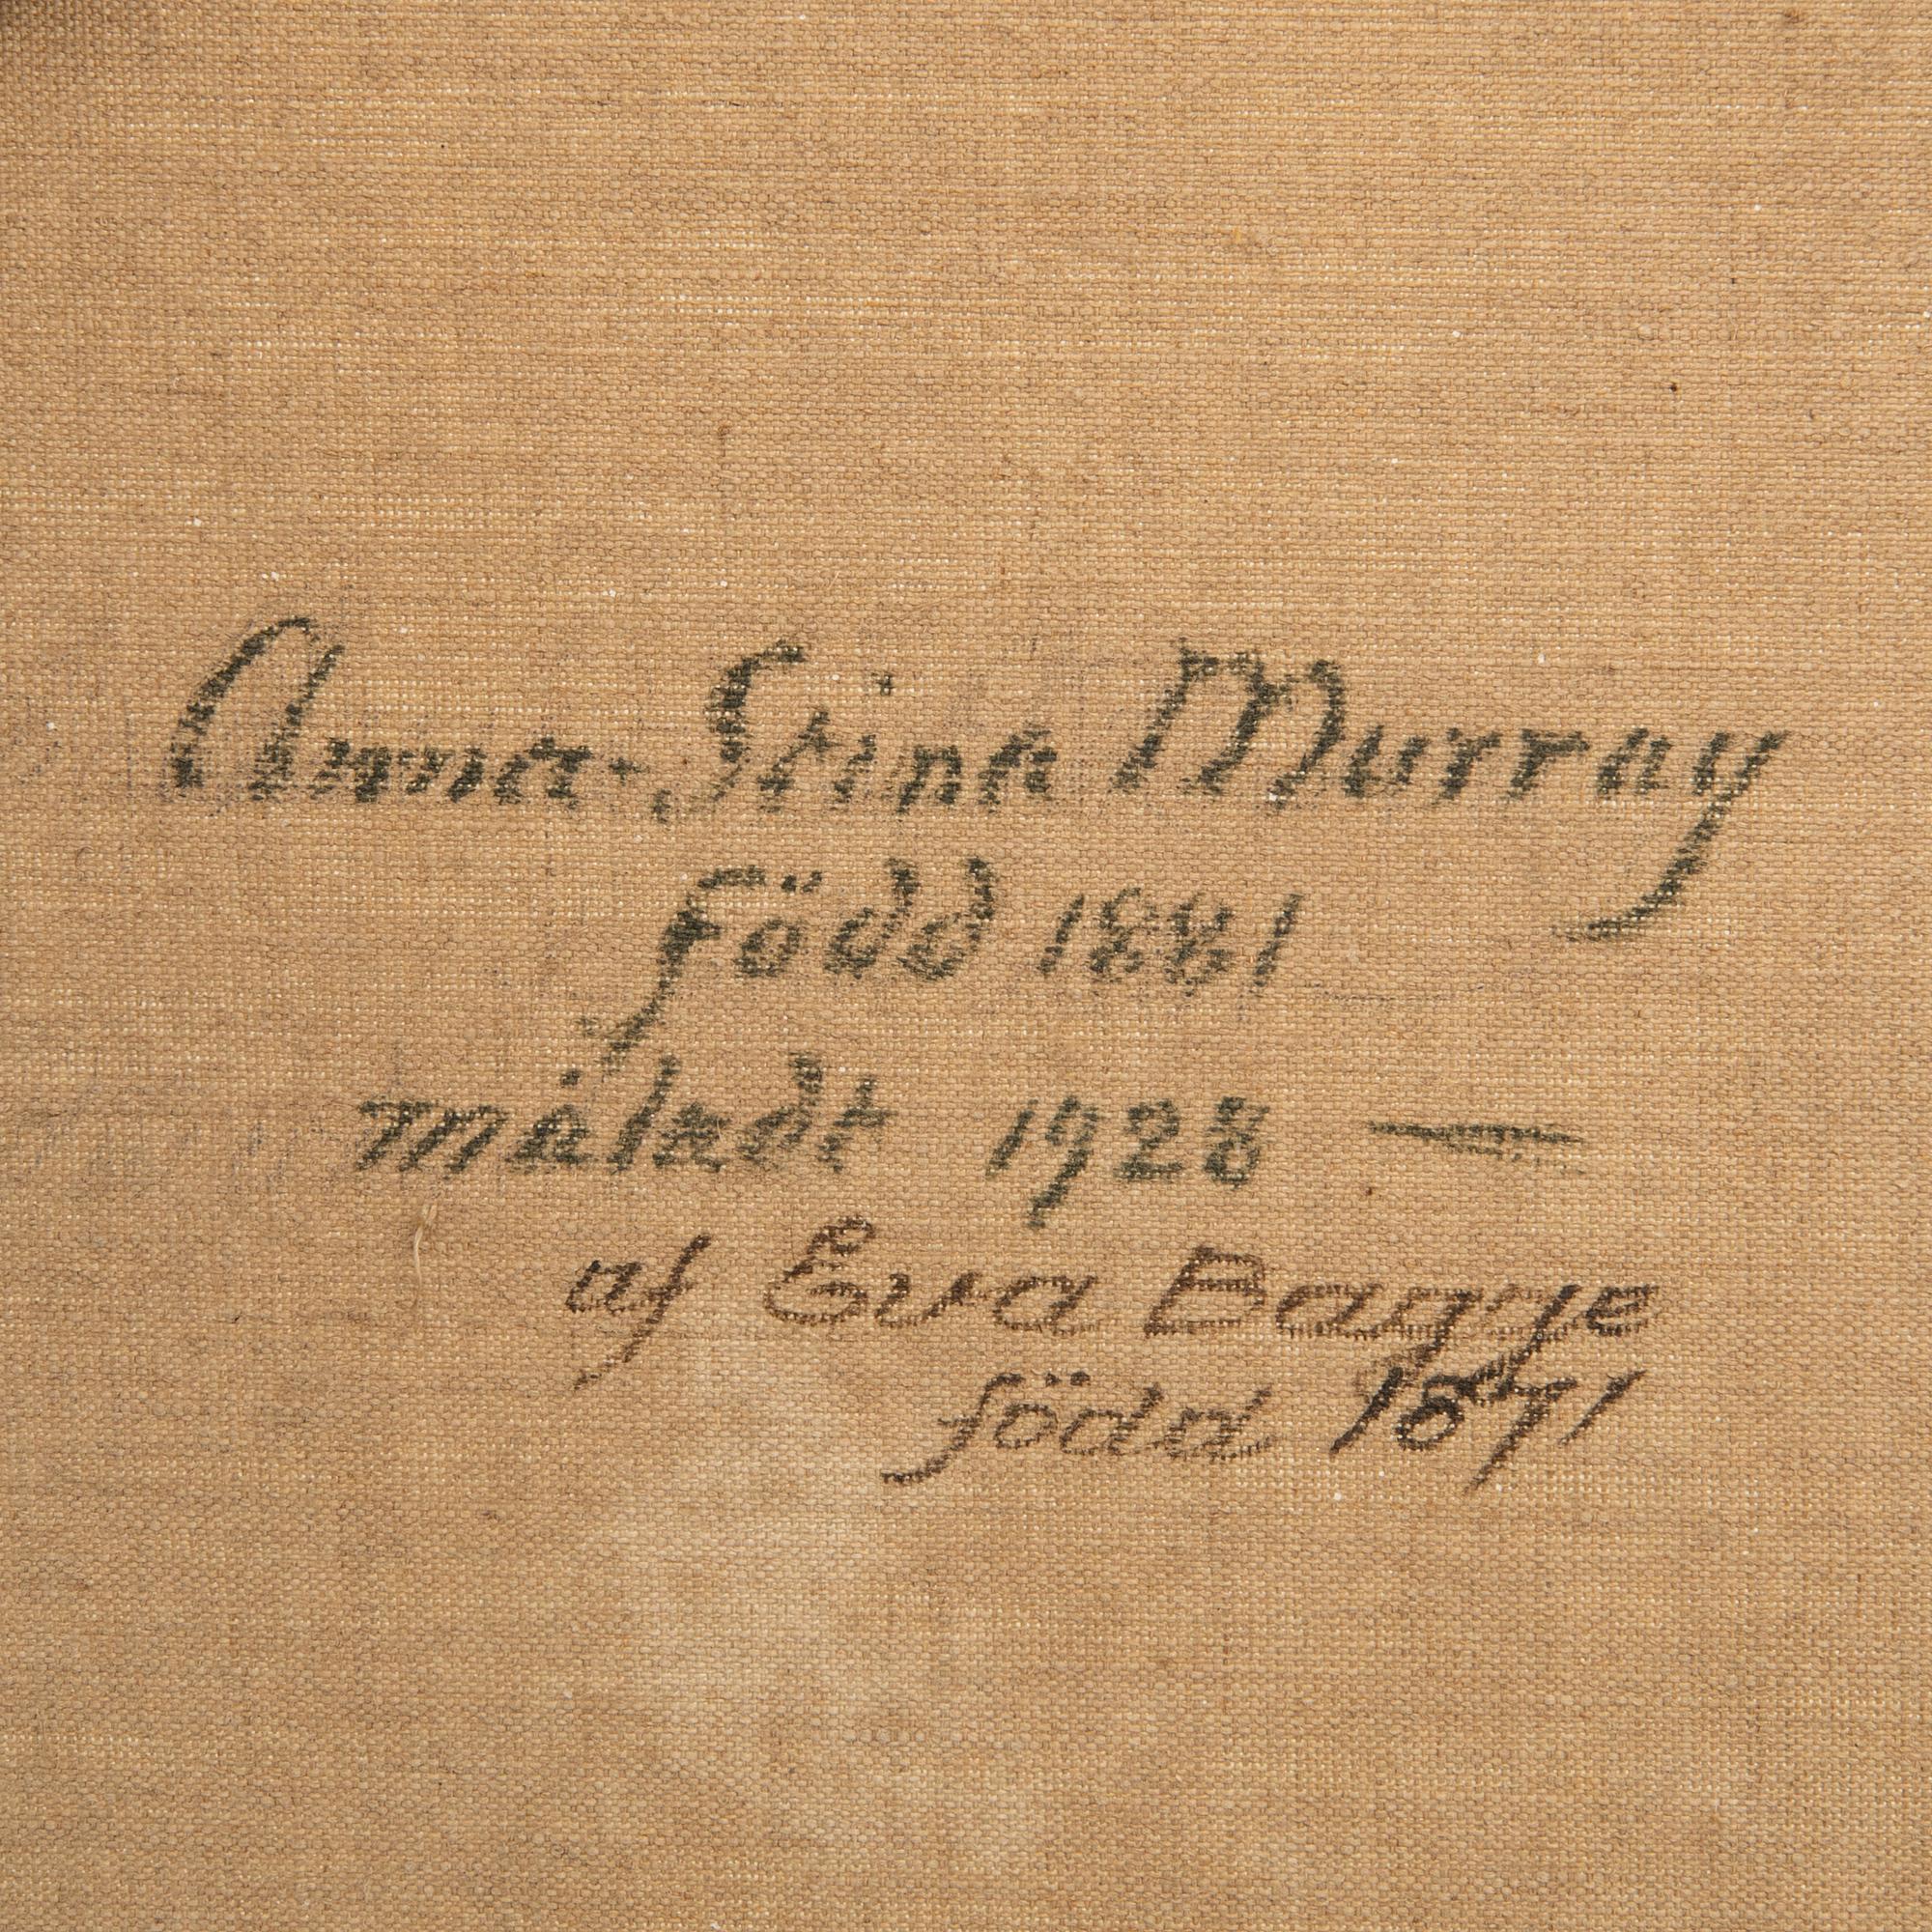 Anna-Stina Murray
född 1881
måladt 1928 —
af Eva Bagge
född 1871